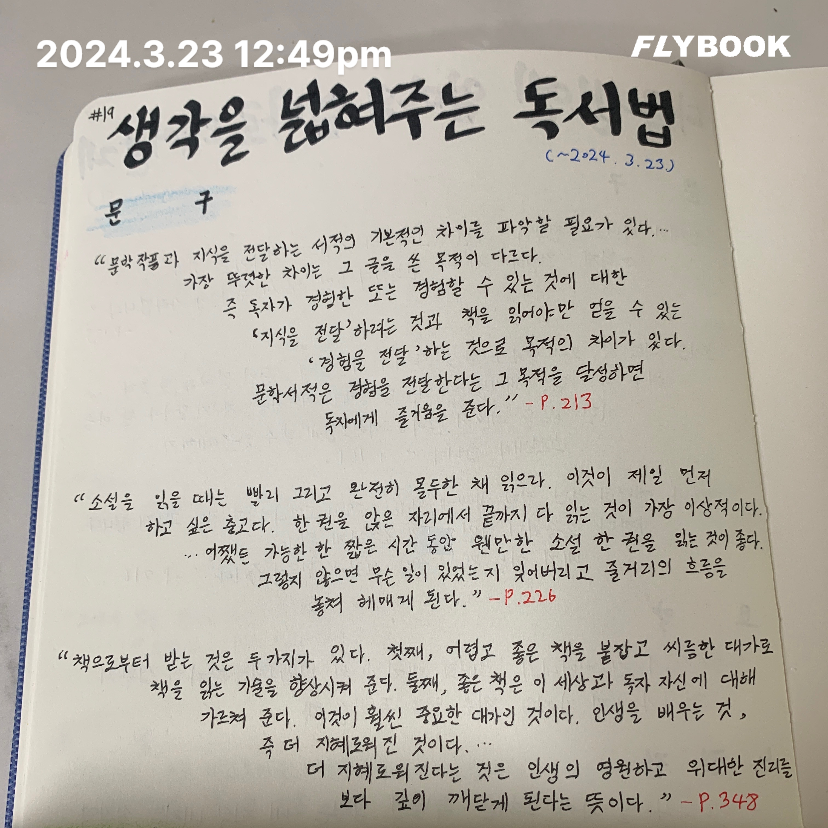 2024.3.23 12:49pm
FLYBOOK
#19 생각을 넓혀주는 독서법
(~2024. 3. 23)
문 구
"문학작품과 지식을 전달하는 서적의 기본적인 차이를 파악할 필요가 있다...
가장 뚜렷한 차이는 그 글을 쓴 목적이 다르다.
즉 독자가 경험한 또는 경험할 수 있는 것에 대한
'지식을 전달'하려는 것과 책을 읽어야만 얻을 수 있는
'경험을 전달'하는 것으로 목적의 차이가 있다.
문학서적은 경험을 전달한다는 그 목적을 달성하면
독자에게 즐거움을 준다." - P.213
"소설을 읽을 때는 빨리 그리고 완전히 몰두한 채 읽으라. 이것이 제일 먼저
하고 싶은 충고다. 한 권을 앉은 자리에서 끝까지 다 읽는 것이 가장 이상적이다.
... 어쨌든 가능한 한 짧은 시간 동안 웬만한 소설 한 권을 읽는 것이 좋다.
그렇지 않으면 무슨 일이 있었는지 잊어버리고 줄거리의 흐름을
놓쳐 헤매게 된다." - P.226
"책으로부터 받는 것은 두가지가 있다. 첫째, 어렵고 좋은 책을 붙잡고 씨름한 대가로
책을 읽는 기술을 향상시켜 준다. 둘째, 좋은 책은 이 세상과 독자 자신에 대해
가르쳐 준다. 이것이 훨씬 중요한 대가인 것이다. 인생을 배우는 것,
즉 더 지혜로워진 것이다. ...
더 지혜로워진다는 것은 인생의 영원하고 위대한 진리를
보다 깊이 깨닫게 된다는 뜻이다." - P.348